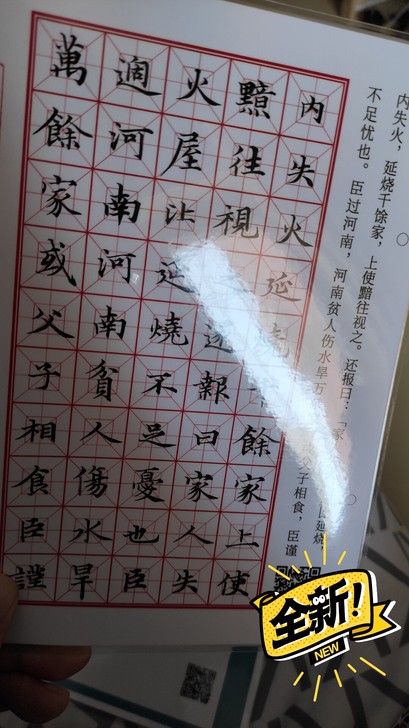 内失火，延烧千馀家，上使黯往视之。还报曰：「家
延烧，
不足忧也。臣过河南，河南贫人伤水旱万
子相食，臣谨
内失火延燒餘家上使
黯往視還報曰家人失
火屋比延燒不足憂也臣
過河南河南貧人傷水旱
萬餘家或父子相食臣謹
全新!
NEW